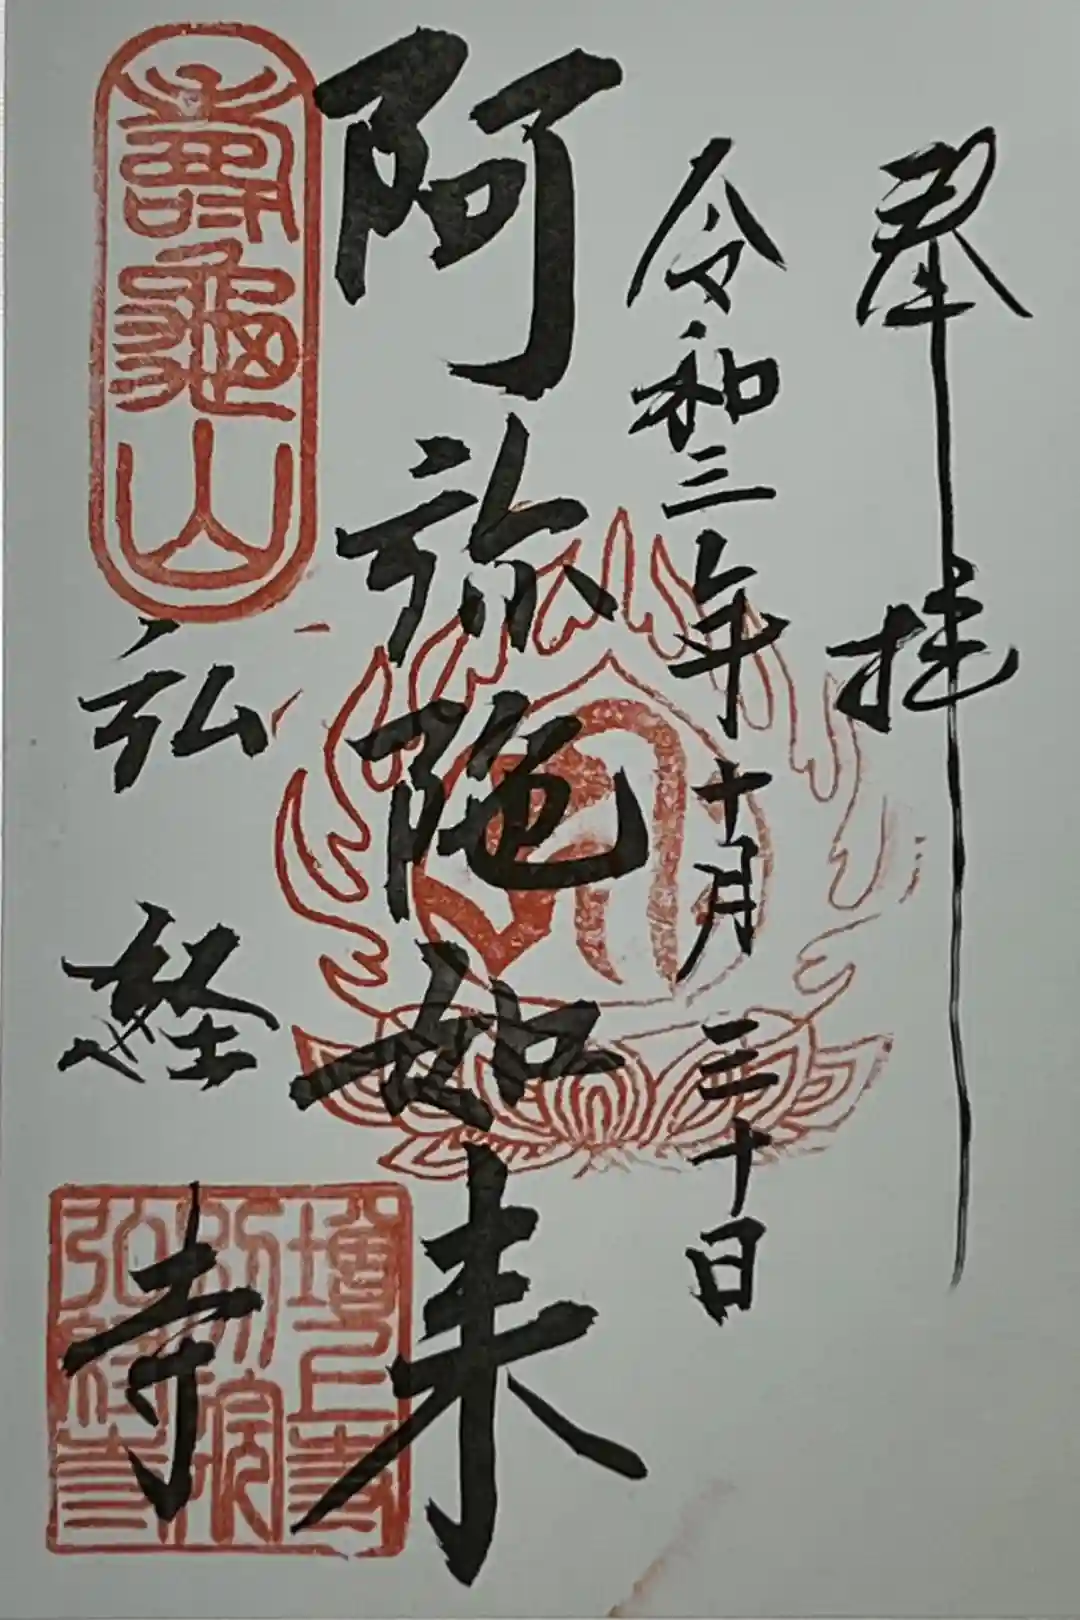 奉拝
令和三年十月三十日
阿弥陀如来
壽龜山
弘経寺
増上寺
別院
弘経寺